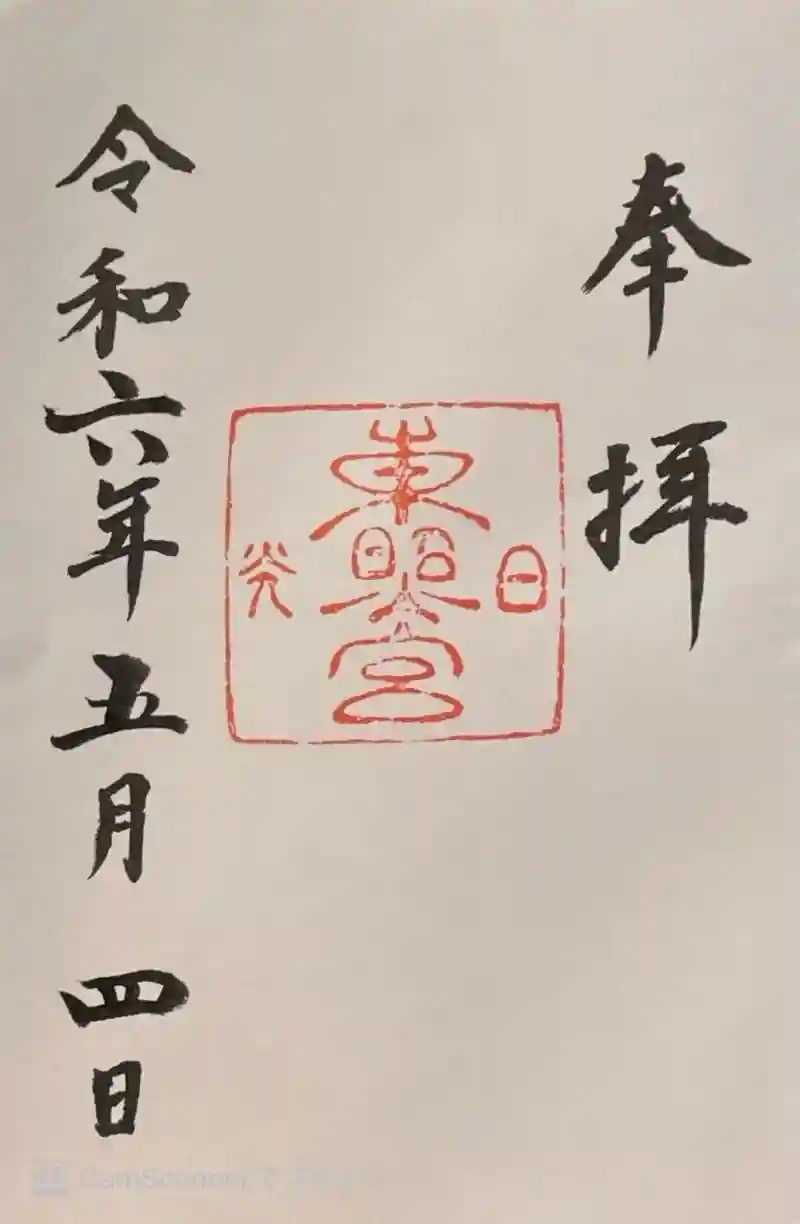 奉拝
日
東照宮
光
令和六年五月四日
CamScanner